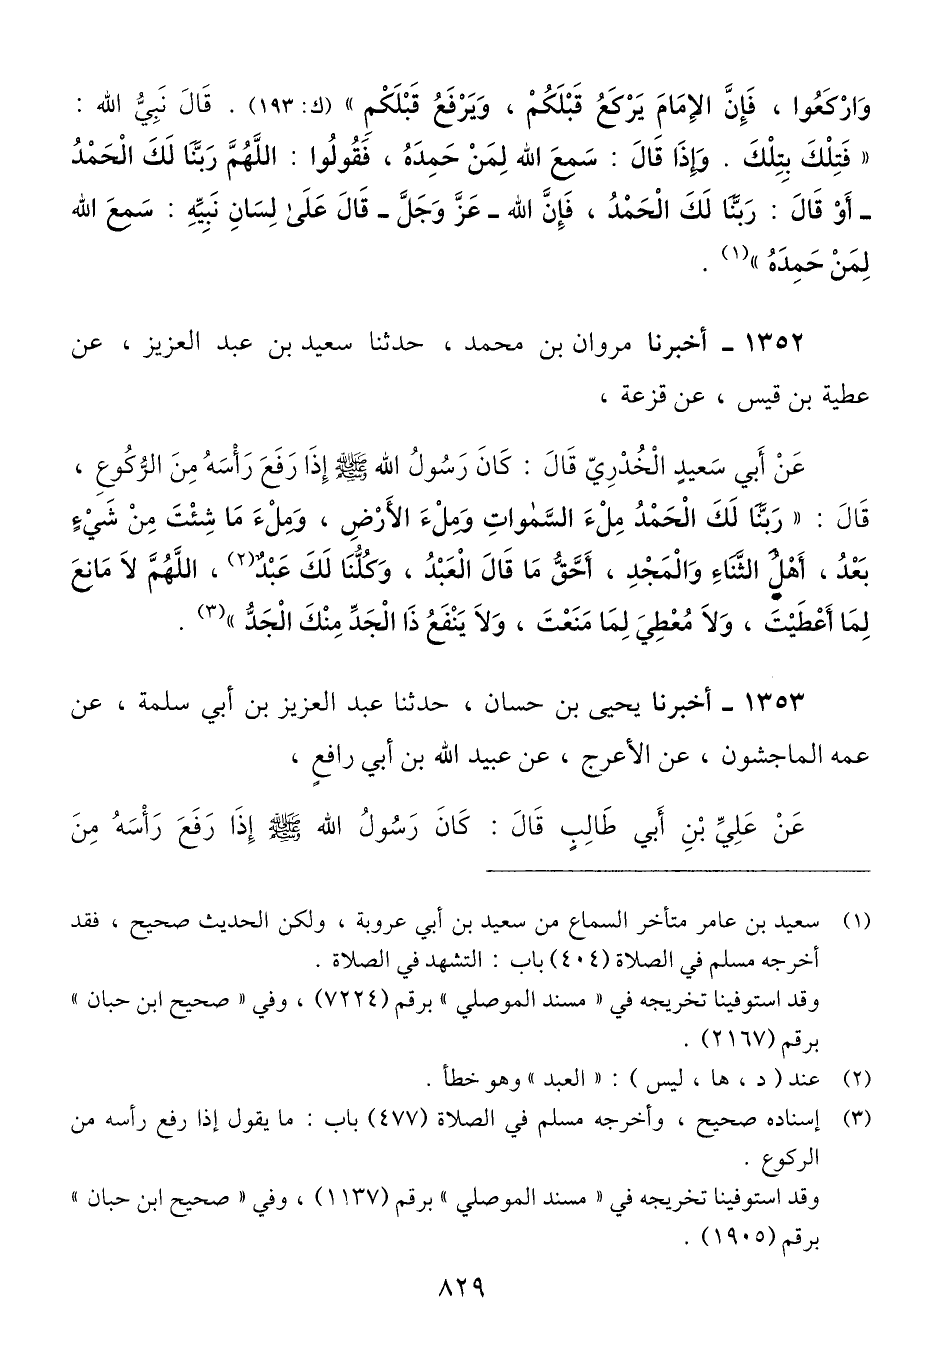 وَارْكَعُوا ، فَإِنَّ الإِمَامَ يَرْكَعُ قَبْلَكُمْ ، وَيَرْفَعُ قَبْلَكُم » (ك: ١٩٣) . قَالَ نَبِيُّ الله :
« فَتِلْكَ بِتِلْكَ . وَإِذَا قَالَ : سَمِعَ الله لِمَنْ حَمِدَهُ ، فَقُولُوا : اللَّهُمَّ رَبَّنَا لَكَ الْحَمْدُ
ـ أَوْ قَالَ : رَبَّنَا لَكَ الْحَمْدُ ، فَإِنَّ الله ـ عَزَّ وَجَلَّ ـ قَالَ عَلَىٰ لِسَانِ نَبِيِّهِ : سَمِعَ الله
لِمَنْ حَمِدَهُ »(١) .
١٣٥٢ ـ أخبرنا مروان بن محمد ، حدثنا سعيد بن عبد العزيز ، عن
عطية بن قيس ، عن قزعة ،
عَنْ أَبي سَعيدٍ الْخُدْرِيّ قَالَ : كَانَ رَسُولُ الله ﷺ إِذَا رَفَعَ رَأْسَهُ مِنَ الرُّكُوعِ ،
قَالَ : « رَبَّنَا لَكَ الْحَمْدُ مِلْءَ السَّمٰواتِ وَمِلْءَ الأَرْضِ ، وَمِلْءَ مَا شِئْتَ مِنْ شَيْءٍ
بَعْدُ ، أَهْلُ الثَّنَاءِ وَالْمَجْدِ ، أَحَقُّ مَا قَالَ الْعَبْدُ ، وَكُلُّنَا لَكَ عَبْدٌ(٢) ، اللَّهُمَّ لاَ مَانِعَ
لِمَا أَعْطَيْتَ ، وَلاَ مُعْطِيَ لِمَا مَنَعْتَ ، وَلاَ يَنْفَعُ ذَا الْجَدِّ مِنْكَ الْجَدُّ »(٣) .
١٣٥٣ ـ أخبرنا يحيى بن حسان ، حدثنا عبد العزيز بن أبي سلمة ، عن
عمه الماجشون ، عن الأعرج ، عن عبيد الله بن أبي رافعٍ ،
عَنْ عَلِيِّ بْنِ أَبي طَالِبٍ قَالَ : كَانَ رَسُولُ الله ﷺ إِذَا رَفَعَ رَأْسَهُ مِنَ
(١) سعيد بن عامر متأخر السماع من سعيد بن أبي عروبة ، ولكن الحديث صحيح ، فقد
أخرجه مسلم في الصلاة (٤٠٤) باب : التشهد في الصلاة .
وقد استوفينا تخريجه في « مسند الموصلي » برقم (٧٢٢٤) ، وفي « صحيح ابن حبان »
برقم (٢١٦٧) .
(٢) عند ( د ، ها ، ليس ) : « العبد » وهو خطأ .
(٣) إسناده صحيح ، وأخرجه مسلم في الصلاة (٤٧٧) باب : ما يقول إذا رفع رأسه من
الركوع .
وقد استوفينا تخريجه في « مسند الموصلي » برقم (١١٣٧) ، وفي « صحيح ابن حبان »
برقم (١٩٠٥) .
٨٢٩